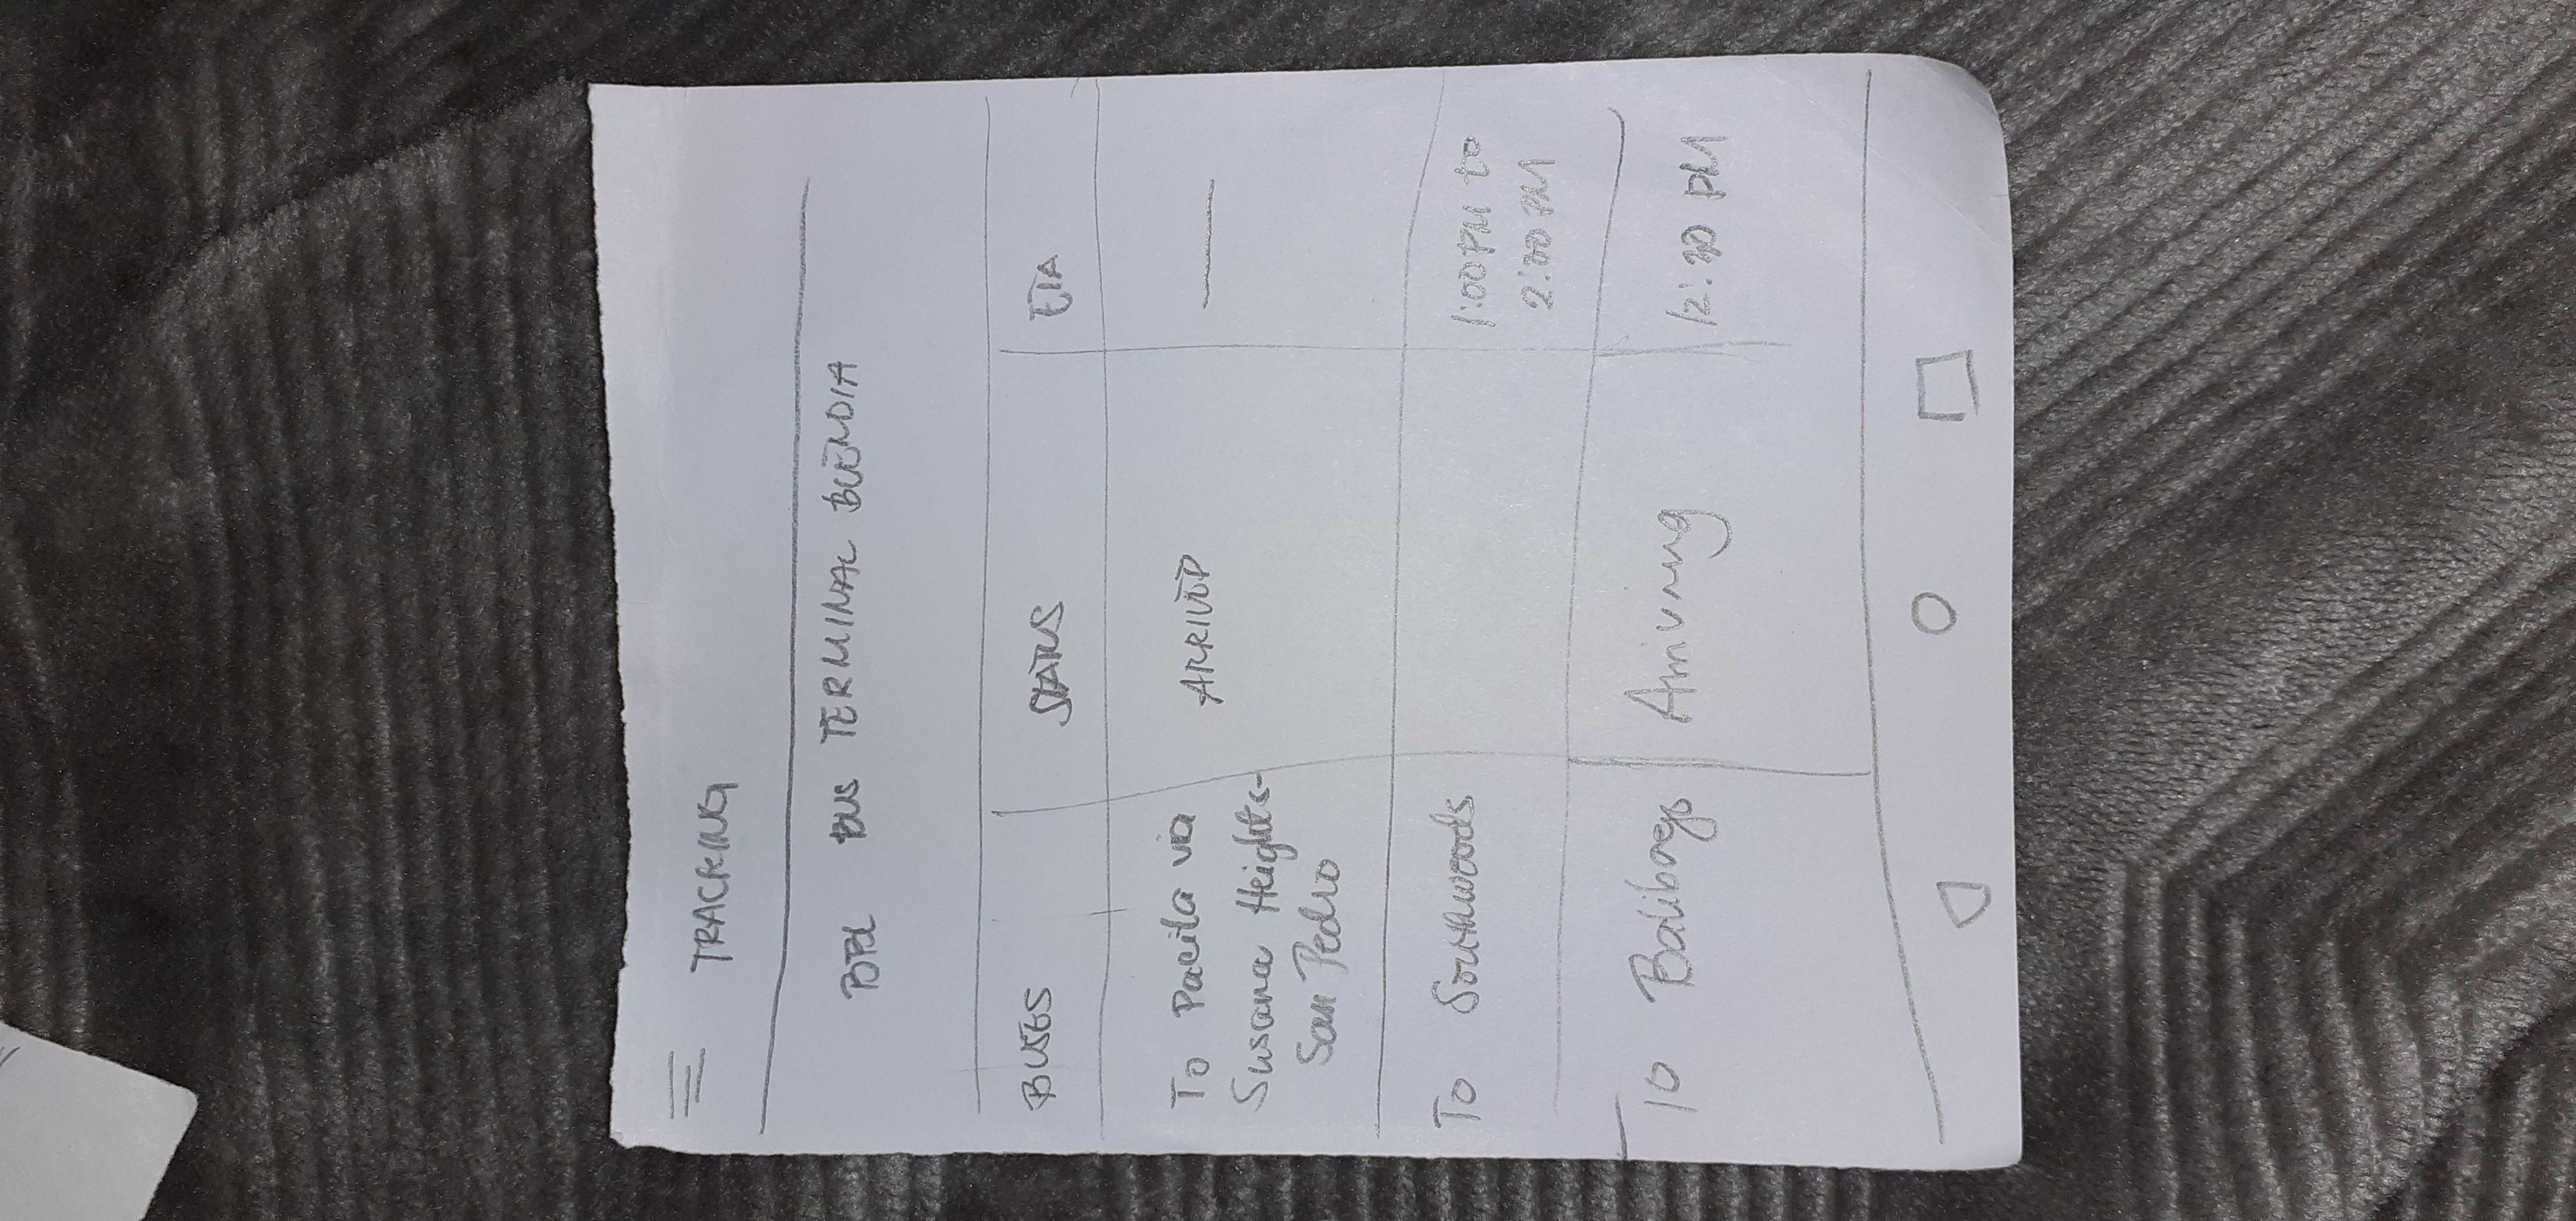 TRACKING
BBL BUS TERMINAL BUENDIA
BUSES STATUS ETA
To Pacita via ARRIVED
Susana Heights-
San Pedro
To Southwoods 1:00 PM to
PM
To Balibago Arriving PM